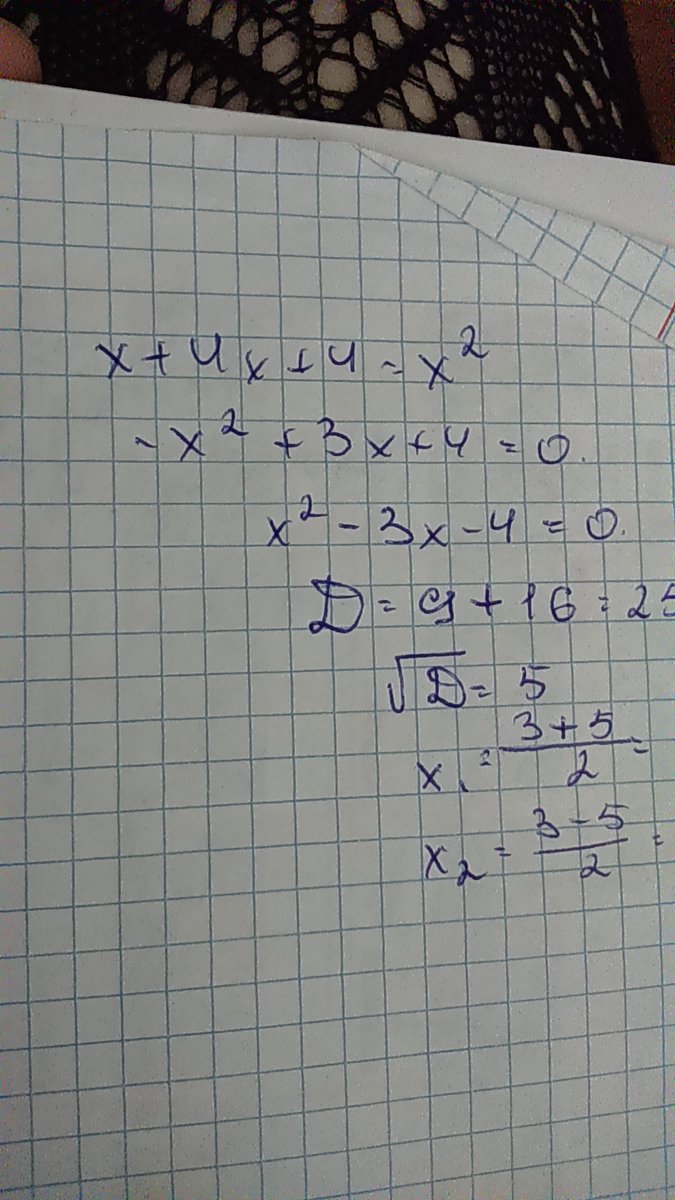 x + 4x + 4 - x²
- x² + 3x + 4 = 0.
x² - 3x - 4 = 0.
D = 9 + 16 = 25
√D = 5
x₁ = (3 + 5)/2 =
x₂ = (3 - 5)/2 =